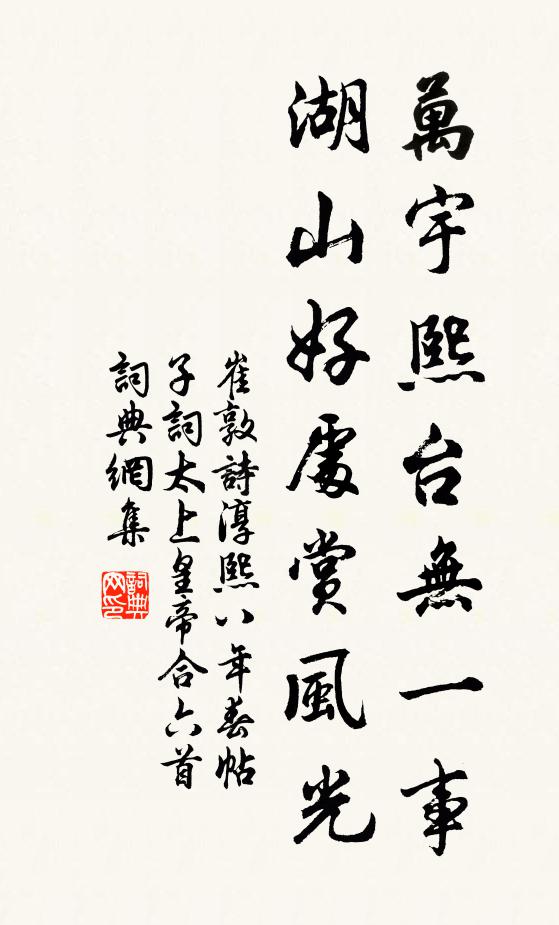 萬宇熙台無一事
湖山好處賞風光
崔敦詩淳熙八年春帖
子詞太上皇帝合六首
詞典網集
詞典網印